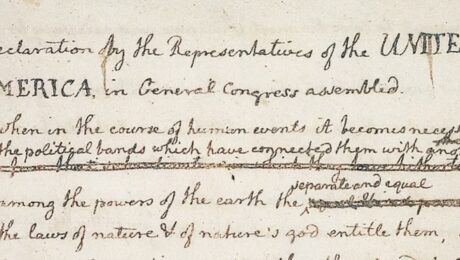 eclaration by the Representatives of the UNITE
MERICA, in General Congress assembled.
when in the course of human events it becomes necess
the political bands which have connected them with ano
separate and equal
among the powers of the earth the
the laws of nature & of nature's god entitle them,